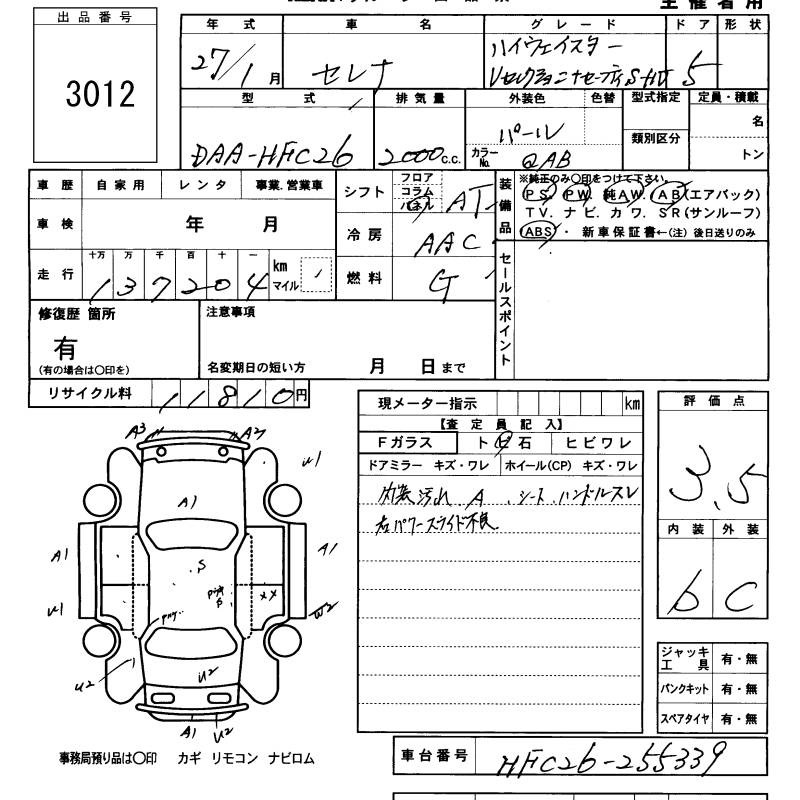 主催者用
出品番号
3012
年式 車名 グレード ドア 形状
27/1月 セレナ ハイウェイスター 5
型式 排気量 外装色 色替 型式指定 定員・積載
DAA-HFC26 2000c.c. パール 類別区分 名
カラーNo. QAB トン
車歴 自家用 レンタ 事業.営業車
車検 年 月
走行 十万 万 千 百 十 一
137204 km マイル
シフト フロア コラム パネル AT
冷房 AAC
燃料 G
装備品 ※純正のみ〇印をつけて下さい。
PS. PW. 純AW. AB(エアバック)
TV. ナビ. カワ. SR(サンルーフ)
ABS・ 新車保証書←(注) 後日送りのみ
セールスポイント
修復歴 箇所
有
(有の場合は〇印を)
注意事項
名変期日の短い方 月 日まで
リサイクル料 11810円
現メーター指示 km
【査定員記入】
Fガラス ト ビ 石 ヒビワレ
ドアミラー キズ・ワレ ホイール(CP) キズ・ワレ
内装 汚れ A. シート. ハンドルスレ
右パワースライド不良
評価点
3.5
内装 外装
b C
ジャッキ工具 有・無
パンクキット 有・無
スペアタイヤ 有・無
A3 A2
U1
A1
A1 S A1
U1 XX W2
U2 U2
A1 U2
事務局預り品は〇印 カギ リモコン ナビロム
車台番号 HFC26-255339